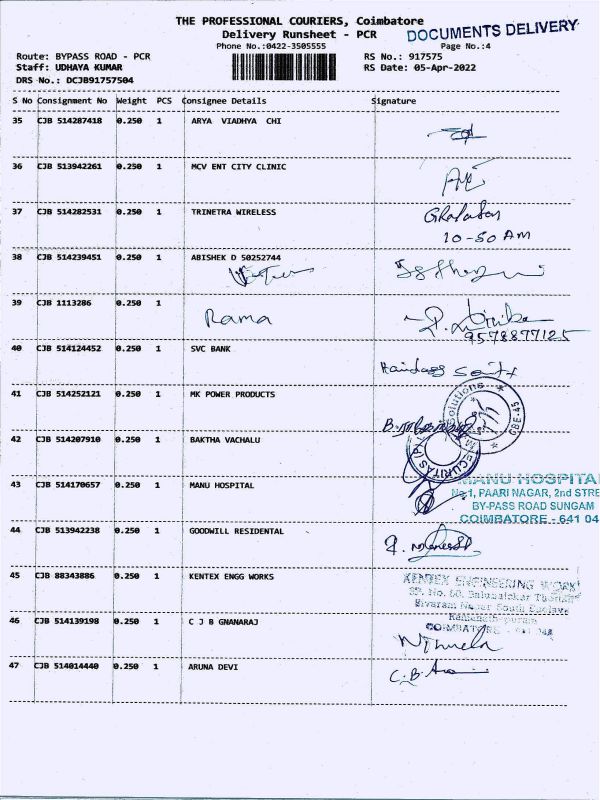 THE PROFESSIONAL COURIERS, Coimbatore
Delivery Runsheet - PCR
DOCUMENTS DELIVERY
Phone No.:0422-3505555
Page No.:4
Route: BYPASS ROAD - PCR
RS No.: 917575
Staff: UDHAYA KUMAR
RS Date: 05-Apr-2022
DRS No.: DCJB91757504
S No Consignment No Weight PCS Consignee Details Signature
35 CJB 514287418 0.250 1 ARYA VIADHYA CHI
36 CJB 513942261 0.250 1 MCV ENT CITY CLINIC
37 CJB 514282531 0.250 1 TRINETRA WIRELESS
10-50 AM
38 CJB 514239451 0.250 1 ABISHEK D 50252744
39 CJB 1113286 0.250 1
Rama
9578877125
40 CJB 514124452 0.250 1 SVC BANK
41 CJB 514252121 0.250 1 MK POWER PRODUCTS
Solutions
CBE-45
42 CJB 514207910 0.250 1 BAKTHA VACHALU
43 CJB 514170657 0.250 1 MANU HOSPITAL
MANU HOSPITA
No.1, PAARI NAGAR, 2nd STRE
BY-PASS ROAD SUNGAM
COIMBATORE - 641 04
44 CJB 513942238 0.250 1 GOODWILL RESIDENTAL
45 CJB 88343886 0.250 1 KENTEX ENGG WORKS
KENTEX ENGINEERING WORK
Sivaram Nagar South
COIMBATORE
46 CJB 514139198 0.250 1 C J B GNANARAJ
47 CJB 514014440 0.250 1 ARUNA DEVI